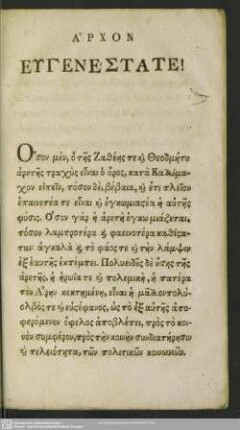 ΑΡΧΟΝ
ΕΥΓΕΝΕΣΤΑΤΕ!
Ὅσον μὲν, ὁ τῆς Ζαθέης τε καὶ Θεοδμήτου
ἀρετῆς τραχὺς εἶναι ὁ ὅρος, κατὰ Καλίμα-
χον εἰπεῖν, τόσον δὲ, βέβαια, καὶ ἔτι πλεῖον
ἐπαινετέα τε εἶναι καὶ ἐγκωμιαςέα ἡ αὐτῆς
φύσις. Ὅσον γὰρ ἡ ἀρετὴ ἐγκωμιάζεται,
τόσον λαμπροτέρα καὶ φαεινοτέρα καθίςα-
ται ἀγκαλὰ καὶ τὸ φάος τε καὶ τὴν λάμψιν
ἐξ ἑαυτῆς ἐκπέμπει. Πολυειδὸς δὲ ὔσης τῆς
ἀρετῆς, ἡ ἡρωία τε καὶ πολεμικὴ, ἡ πατέρα
τὸν Ἄρην κεκτημένη, εἶναι ἡ μᾶλλον πολύ-
ολβός τε καὶ εὐςέφανος, ὡς τὸ ἐξ αὐτῆς ἀπο-
φερόμενον ὄφελος ἀποβλέπει, πρὸς τὸ κοι-
νὸν συμφέρον, πρὸς τὴν κοινὴν συνδιατήρησιν
καὶ τελειότητα, τῶν πολιτικῶν κοινωνιῶν.